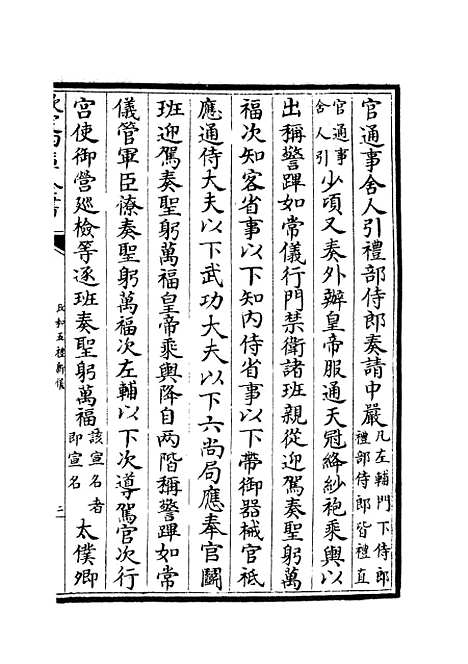 官通事舍人引禮部侍郎奏請中嚴凡左輔門下侍郎禮部侍郎皆禮直
官通事舍人引少頃又奏外辦皇帝服通天冠絳紗袍乘輿以
出稱警蹕如常儀行門禁衛諸班親從迎駕奏聖躬萬
福次知客省事以下知內侍省事以下帶御器械官祗
應通侍大夫以下武功大夫以下六尚局應奉官闢
班迎駕奏聖躬萬福皇帝乘輿降自西階稱警蹕如常
儀管軍臣僚奏聖躬萬福次左輔以下次導駕官次行
宮使御營廵檢等逐班奏聖躬萬福該宣名者即宣名太僕卿
欽定四庫全書
政和五禮新儀
二